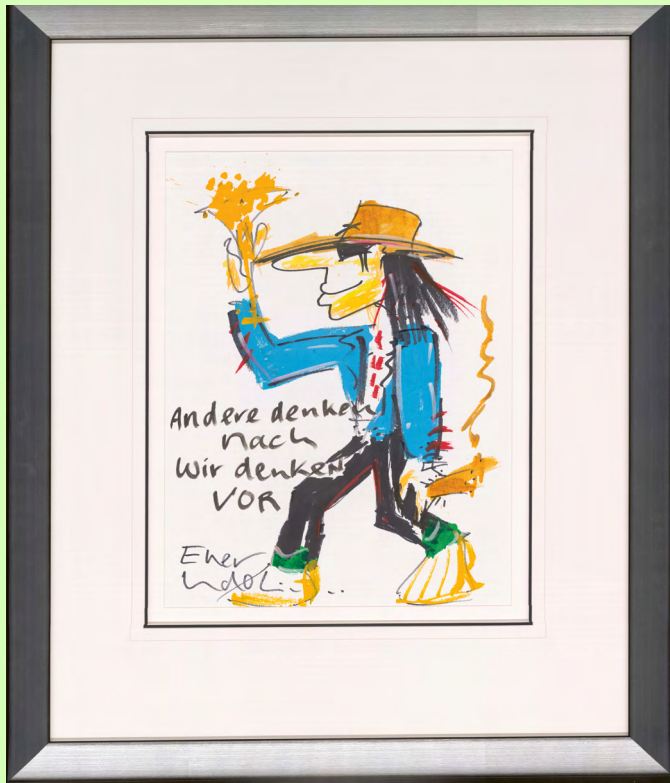 Andere denken
nach
Wir denken
VOR
Euer
Udo......